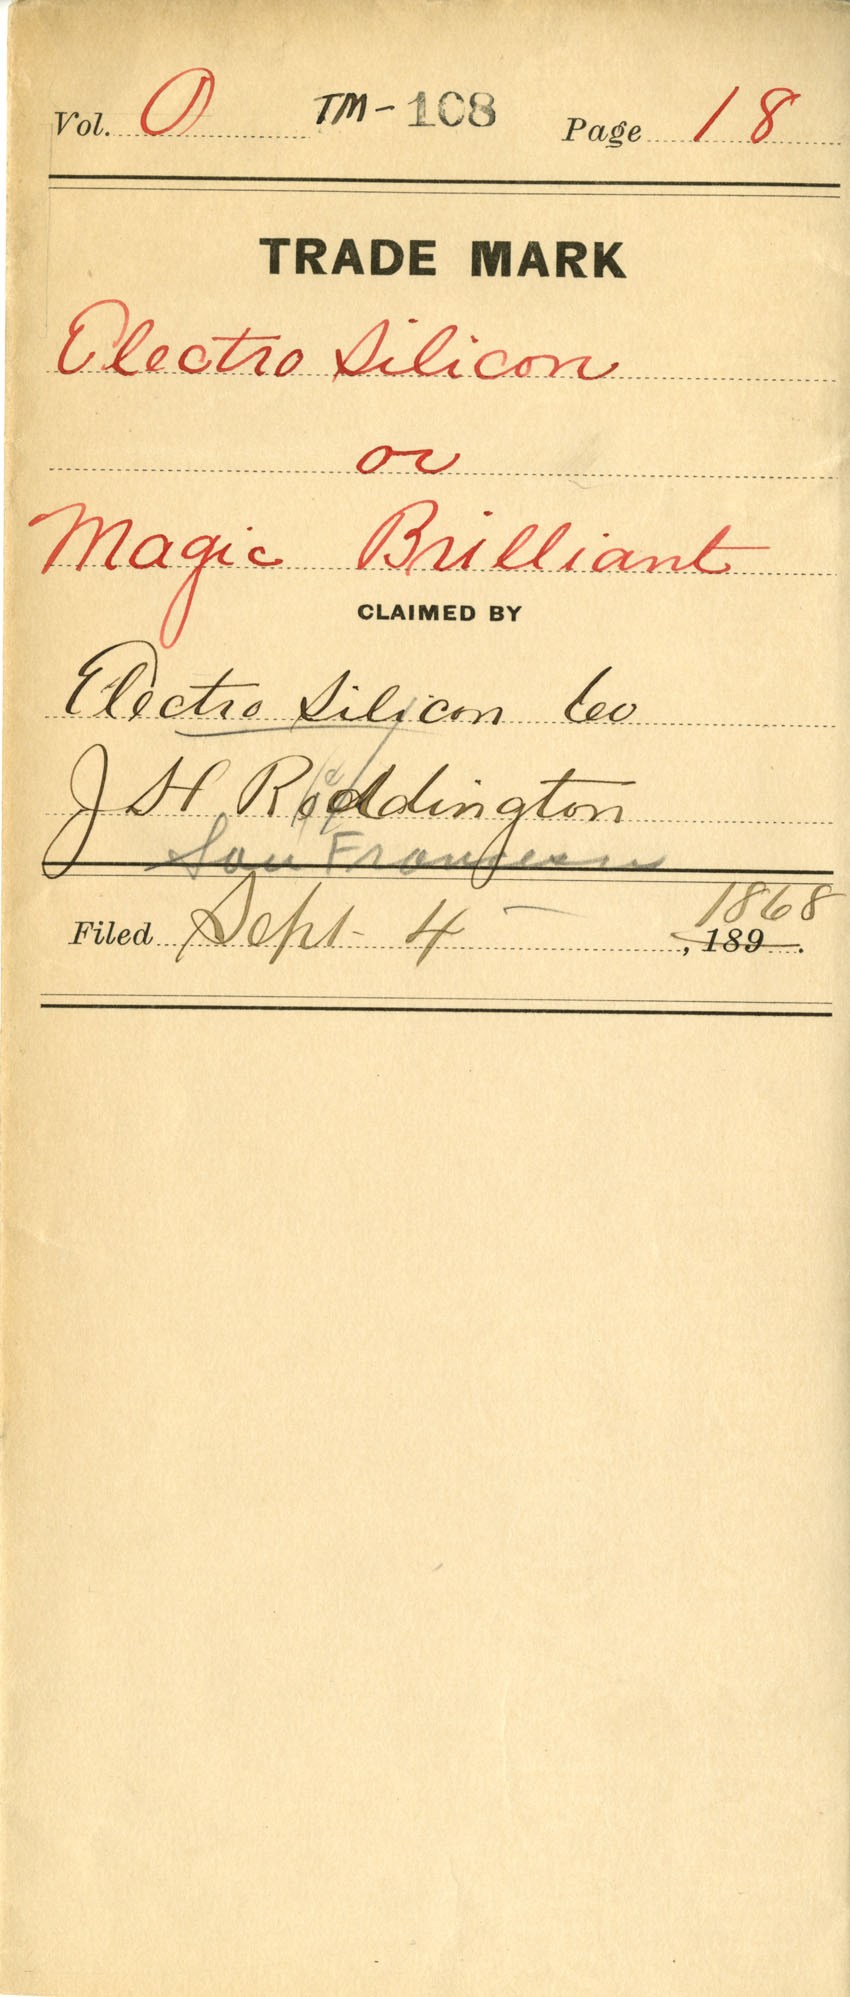 Vol. O TM-108 Page 18
TRADE MARK
Electro Silicon
or
Magic Brilliant
CLAIMED BY
Electro Silicon Co
J H Roddington
San Francisco
Filed Sept 4 1868
, 189 .